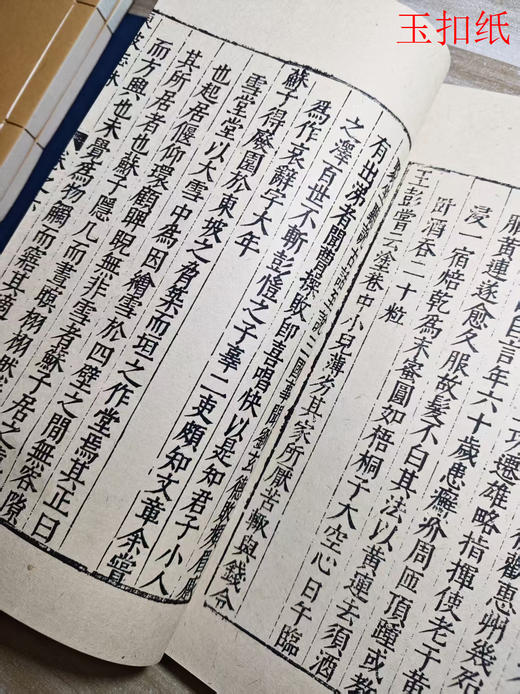 玉扣纸
巧遷雄略指揮使老于黃
自言年六十歲患癬疥周匝頂踵或教
服黃連遂愈久服故髮不白其法以黃連去須酒
浸一宿焙乾爲末蜜圓如梧桐子大空心日午臨
臥酒吞二十粒
王彭嘗云塗巷中小兒薄劣其家所厭苦輒與錢令
聚坐聽說古話至說三國事聞劉玄德敗
有出涕者聞曹操敗即喜唱快以是知君子小人
之澤百世不斬彭愷之子吏頗知文章余嘗
爲作哀辭字大年
蘇子得廢園於東坡之脅築而垣之作堂焉其正曰
雪堂堂以大雪中爲因繪雪於四壁之間無容隙
也起居偃仰環顧睥睨無非雪者蘇子居之
其所居者也蘇子隱几而晝瞑栩栩然
而方興也未覺爲物觸而寤其適